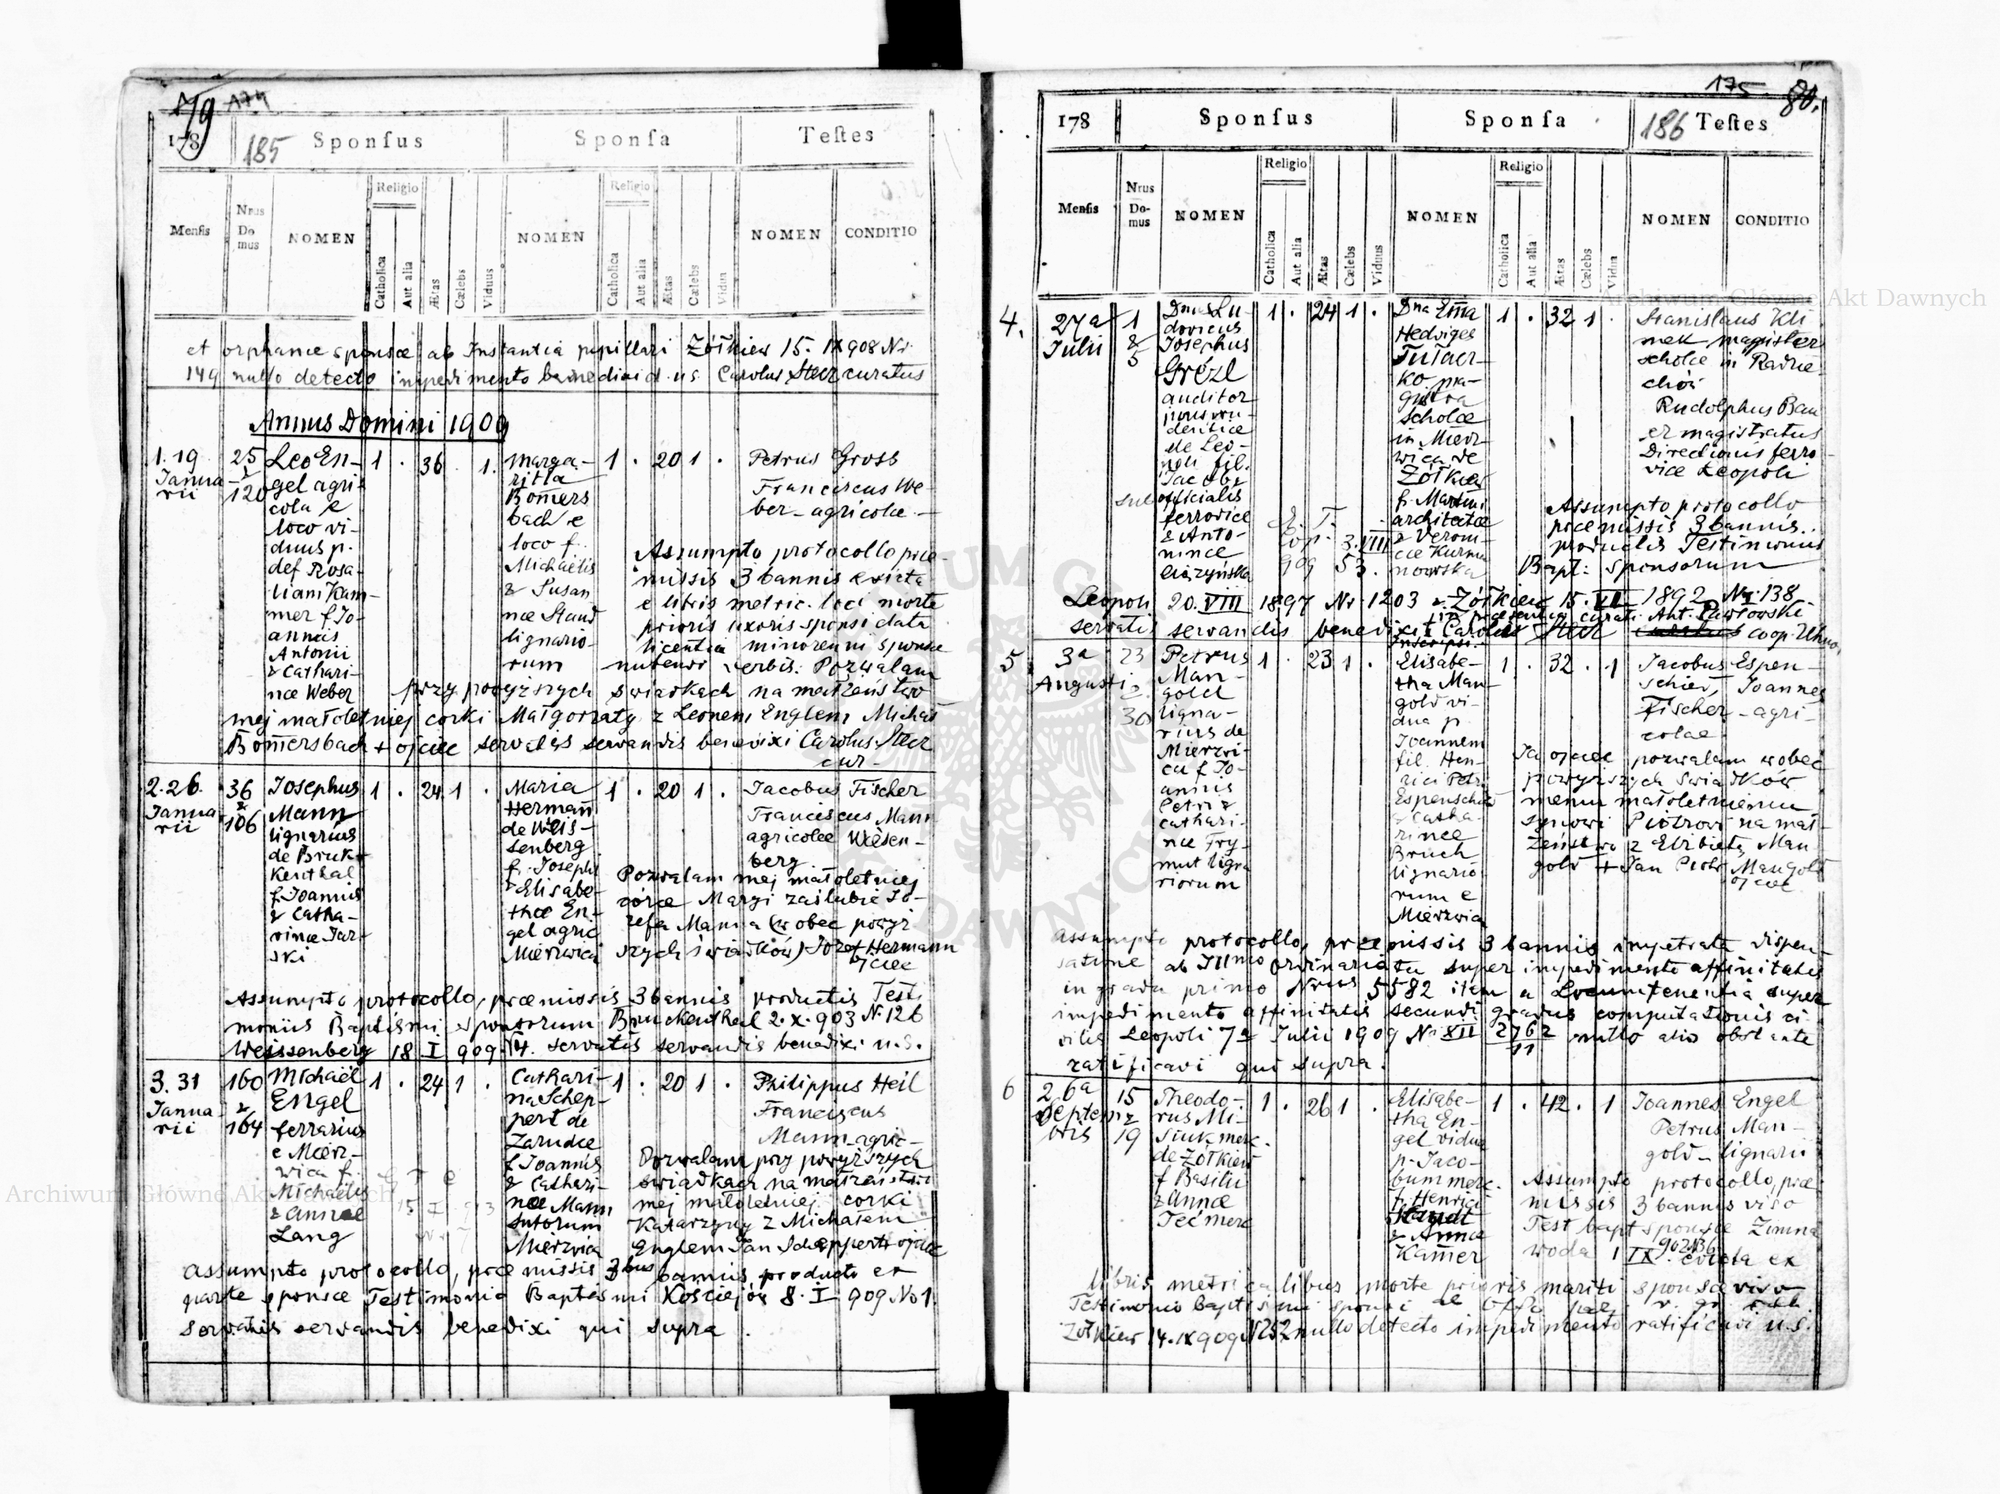 179 174
178 185 Sponsus Sponsa Testes
Mensis Nrus Domus NOMEN Religio Catholica Aut alia Ætas Cælebs Viduus NOMEN Religio Catholica Aut alia Ætas Cælebs Vidua NOMEN CONDITIO
et orphanæ sponsæ ab Instantia pupillari Żółkiew 15. IX 908 Nr.
149 nullo detecto impedimento benedixi d. us. Carolus Stecz curatus
Annus Domini 1909
1. 19 Januarii
25 & 120
Leo En-
gel agri-
cola e
loco vi-
duus p.
def Rosa-
liam Kam-
mer f. Jo-
annis
Antonii
& Cathari-
næ Weber
1 . 36 . 1.
Marga-
ritta
Bom̄ers
bach e
loco f.
Michaelis
& Susan
næ Staud
lignario-
rum
1 . 20 1 .
Petrus Gross
Franciscus We-
ber - agricolæ -
Assumpto protocollo præ-
missis 3 bannis evicta
e libris metric. loci morte
prioris uxoris sponsi data
licentia minorenni sponsæ
nubendi verbis: Pozwalam
przy powyższych świadkach na małżeństwo
mej małoletniej córki Małgorzaty z Leonem Englem Michał
Bom̄ersbach + ojciec servatis servandis benedixi Carolus Stecz
cur-
2. 26. Januarii
36 & 106
Josephus
Mann
lignarius
de Bruk-
kenthal
f. Joannis
& Catha-
rinæ Jar-
ski
1 . 24 1 .
Maria
Herman̄
de Weis-
senberg
f. Josephi
& Elisabe-
thæ En-
gel agric
Mierzwica
1 . 20 1 .
Jacobus Fischer
Franciscus Mann
agricolæ Weisen-
berg
Pozwalam mej małoletniej
córce Maryi zaślubić Jó-
zefa Manna (w obec powyż
szych świadków) Józef Hermann
ojciec
Assumpto protocollo, præmissis 3 bannis productis Testi
moniis Baptismi sponsorum Bruckenthal 2. X. 903 N. 126
Weissenberg 18 I 909 N 4. servatis servandis benedixi u. s.
3. 31 Januarii
160 & 164
Michaël
Engel
ferrarius
e Mierz-
wica f.
Michaelis
& Annæ
Lang
1 . 24 1 .
Cathari-
na Schep-
pert de
Zarudce
f. Joannis
& Cathari-
næ Mann
sutorum
Mierzwica
1 . 20 1 .
Philippus Heil
Franciscus
Mann - agric-
Pozwalam przy powyższych
świadkach na małżeństwo
mej małoletniej córki
Katarzyny z Michałem
Englem Jan Scheppert + ojciec
Assumpto protocollo, præmissis 3bus bannis, producto ex
parte sponsæ Testimonio Baptismi Kościejów 8. I 909 No 1.
servatis servandis benedixi qui supra .
175 80.
178 Sponsus Sponsa 186 Testes
Mensis Nrus Domus NOMEN Religio Catholica Aut alia Ætas Cælebs Viduus NOMEN Religio Catholica Aut alia Ætas Cælebs Vidua NOMEN CONDITIO
4. 27a Julii
1 & 5
Dnus Lu-
dovicus
Josephus
Grézl
auditor
jurispru-
dentiæ
de Leo-
poli fil.
Jacobi
officialis
ferroviæ
& Anto-
ninæ
1 . 24 1 .
Dna Em̄a
Hedviges
magistra
scholæ
in Mierz-
wica de
Żółkiew
f. Martini
architectæ
& Veroni-
cæ Kurma
nowska
1 . 32 1 .
Stanislaus Kli
mek magister
scholæ in Radzie-
chów
Rudolphus Bau
er magistratus
Directionis ferro-
viæ Leopoli
Assumpto protocollo
præmissis 3 bannis.
productis Testimoniis
Bapt: sponsorum
Leopoli 20. VIII 1897 Nr 1203 & Żółkiew 15. VI 1892 Nr. 138.
servatis servandis benedixit in præsentia curati Ant. Pawłowski coop.
5 3a Augusti
23 & 30
Petrus
Man-
gold
ligna-
rius de
Mierzwi-
ca f. Jo-
annis
Petri &
Cathari-
næ Fry-
mut ligna
riorum
1 . 23 1 .
Elisabe-
tha Man-
gold vi-
dua p.
Joannem
fil. Hen-
rici Petri
Espenschied
& Catha-
rinæ
Bruch
lignario-
rum e
Mierzwica
1 . 32 . 1
Jacobus Espen-
schied, Joannes
Fischer - agri-
colæ
Ja ojciec pozwalam wobec
powyższych świadków
memu małoletniemu
synowi Piotrowi na mał-
żeństwo z Elżbietą Man-
gold + Jan Piotr Mangold
ojciec
Assumpto protocollo, præmissis 3 bannis impetrata dispen-
satione ab Illmo Ordinariatu super impedimento affinitatis
in gradu primo Nrus 5582 item a Locumtenentia super
impedimento affinitatis secundi gradus computationis ci-
vilis Leopoli 7a Julii 1909 No XII 2762/11 nullo alio obstante
ratificavi qui supra .
6 26a Septembris
15 & 19
Theodo-
rus Mi-
de Żółkiew
f Basilii
& Annæ
1 . 26 1 .
Elisabe-
tha En-
gel vidua
p. Jaco-
bum merc.
f. Henrici
Staudt
& Annæ
Kam̄er
1 . 42 . 1
Joannes Engel
Petrus Man-
gold - lignarii
Assumpto protocollo, præ
missis 3 bannis viso
Test bapt sponsæ Zimna
woda 1 IX 902 evicta ex
libris metricalibus morte prioris mariti sponsæ viso
Testimonio baptismi sponsi
Żółkiew 14. IX 909 N 252 nullo detecto impedimento ratificavi u. s.
Archiwum Główne Akt Dawnych
Archiwum Główne Akt Dawnych